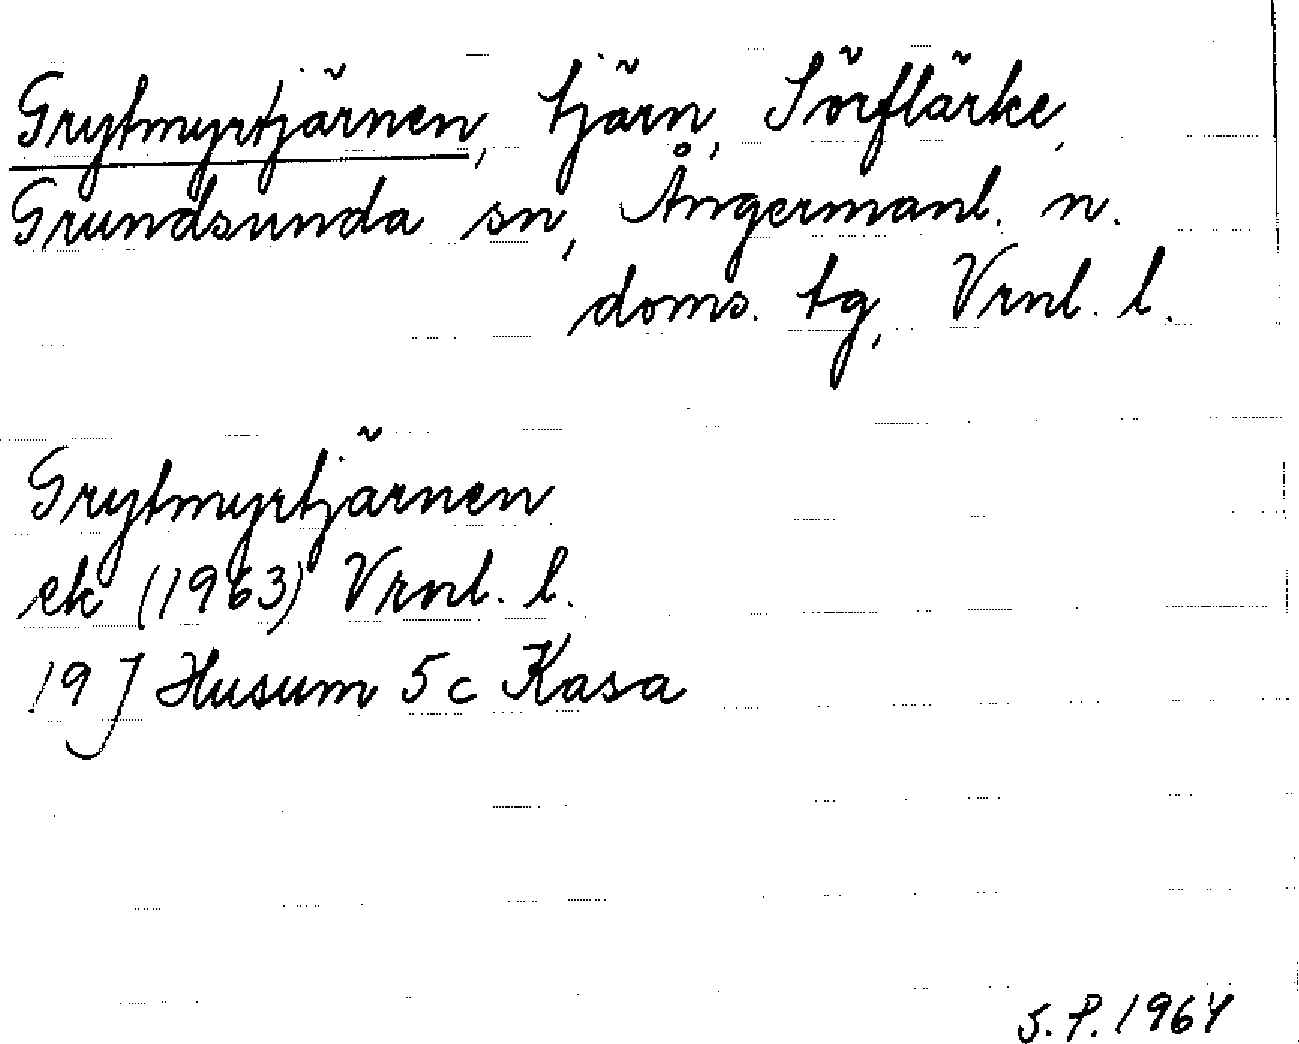 Grytmyrtjärnen, tjärn, Sörflärke,
Grundsunda sn, Ångermanl. n.
doms. tg, Vrnl. l.
Grytmyrtjärnen
ek (1963) Vrnl. l.
19 J Husum 5 c Kasa
S. P. 1964